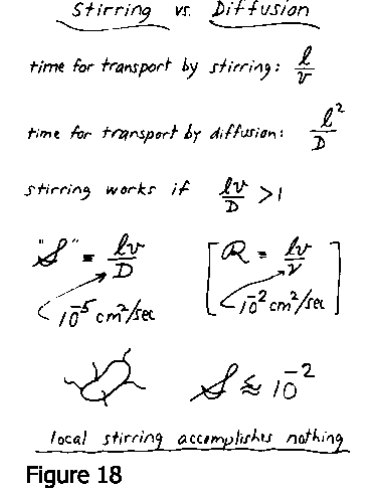 Stirring vs. Diffusion
time for transport by stirring: l/v
time for transport by diffusion: l²/D
stirring works if lv/D > 1
"S" = lv/D [ R = lv/ν ]
10⁻⁵ cm²/sec 10⁻² cm²/sec
S ≲ 10⁻²
local stirring accomplishes nothing
Figure 18